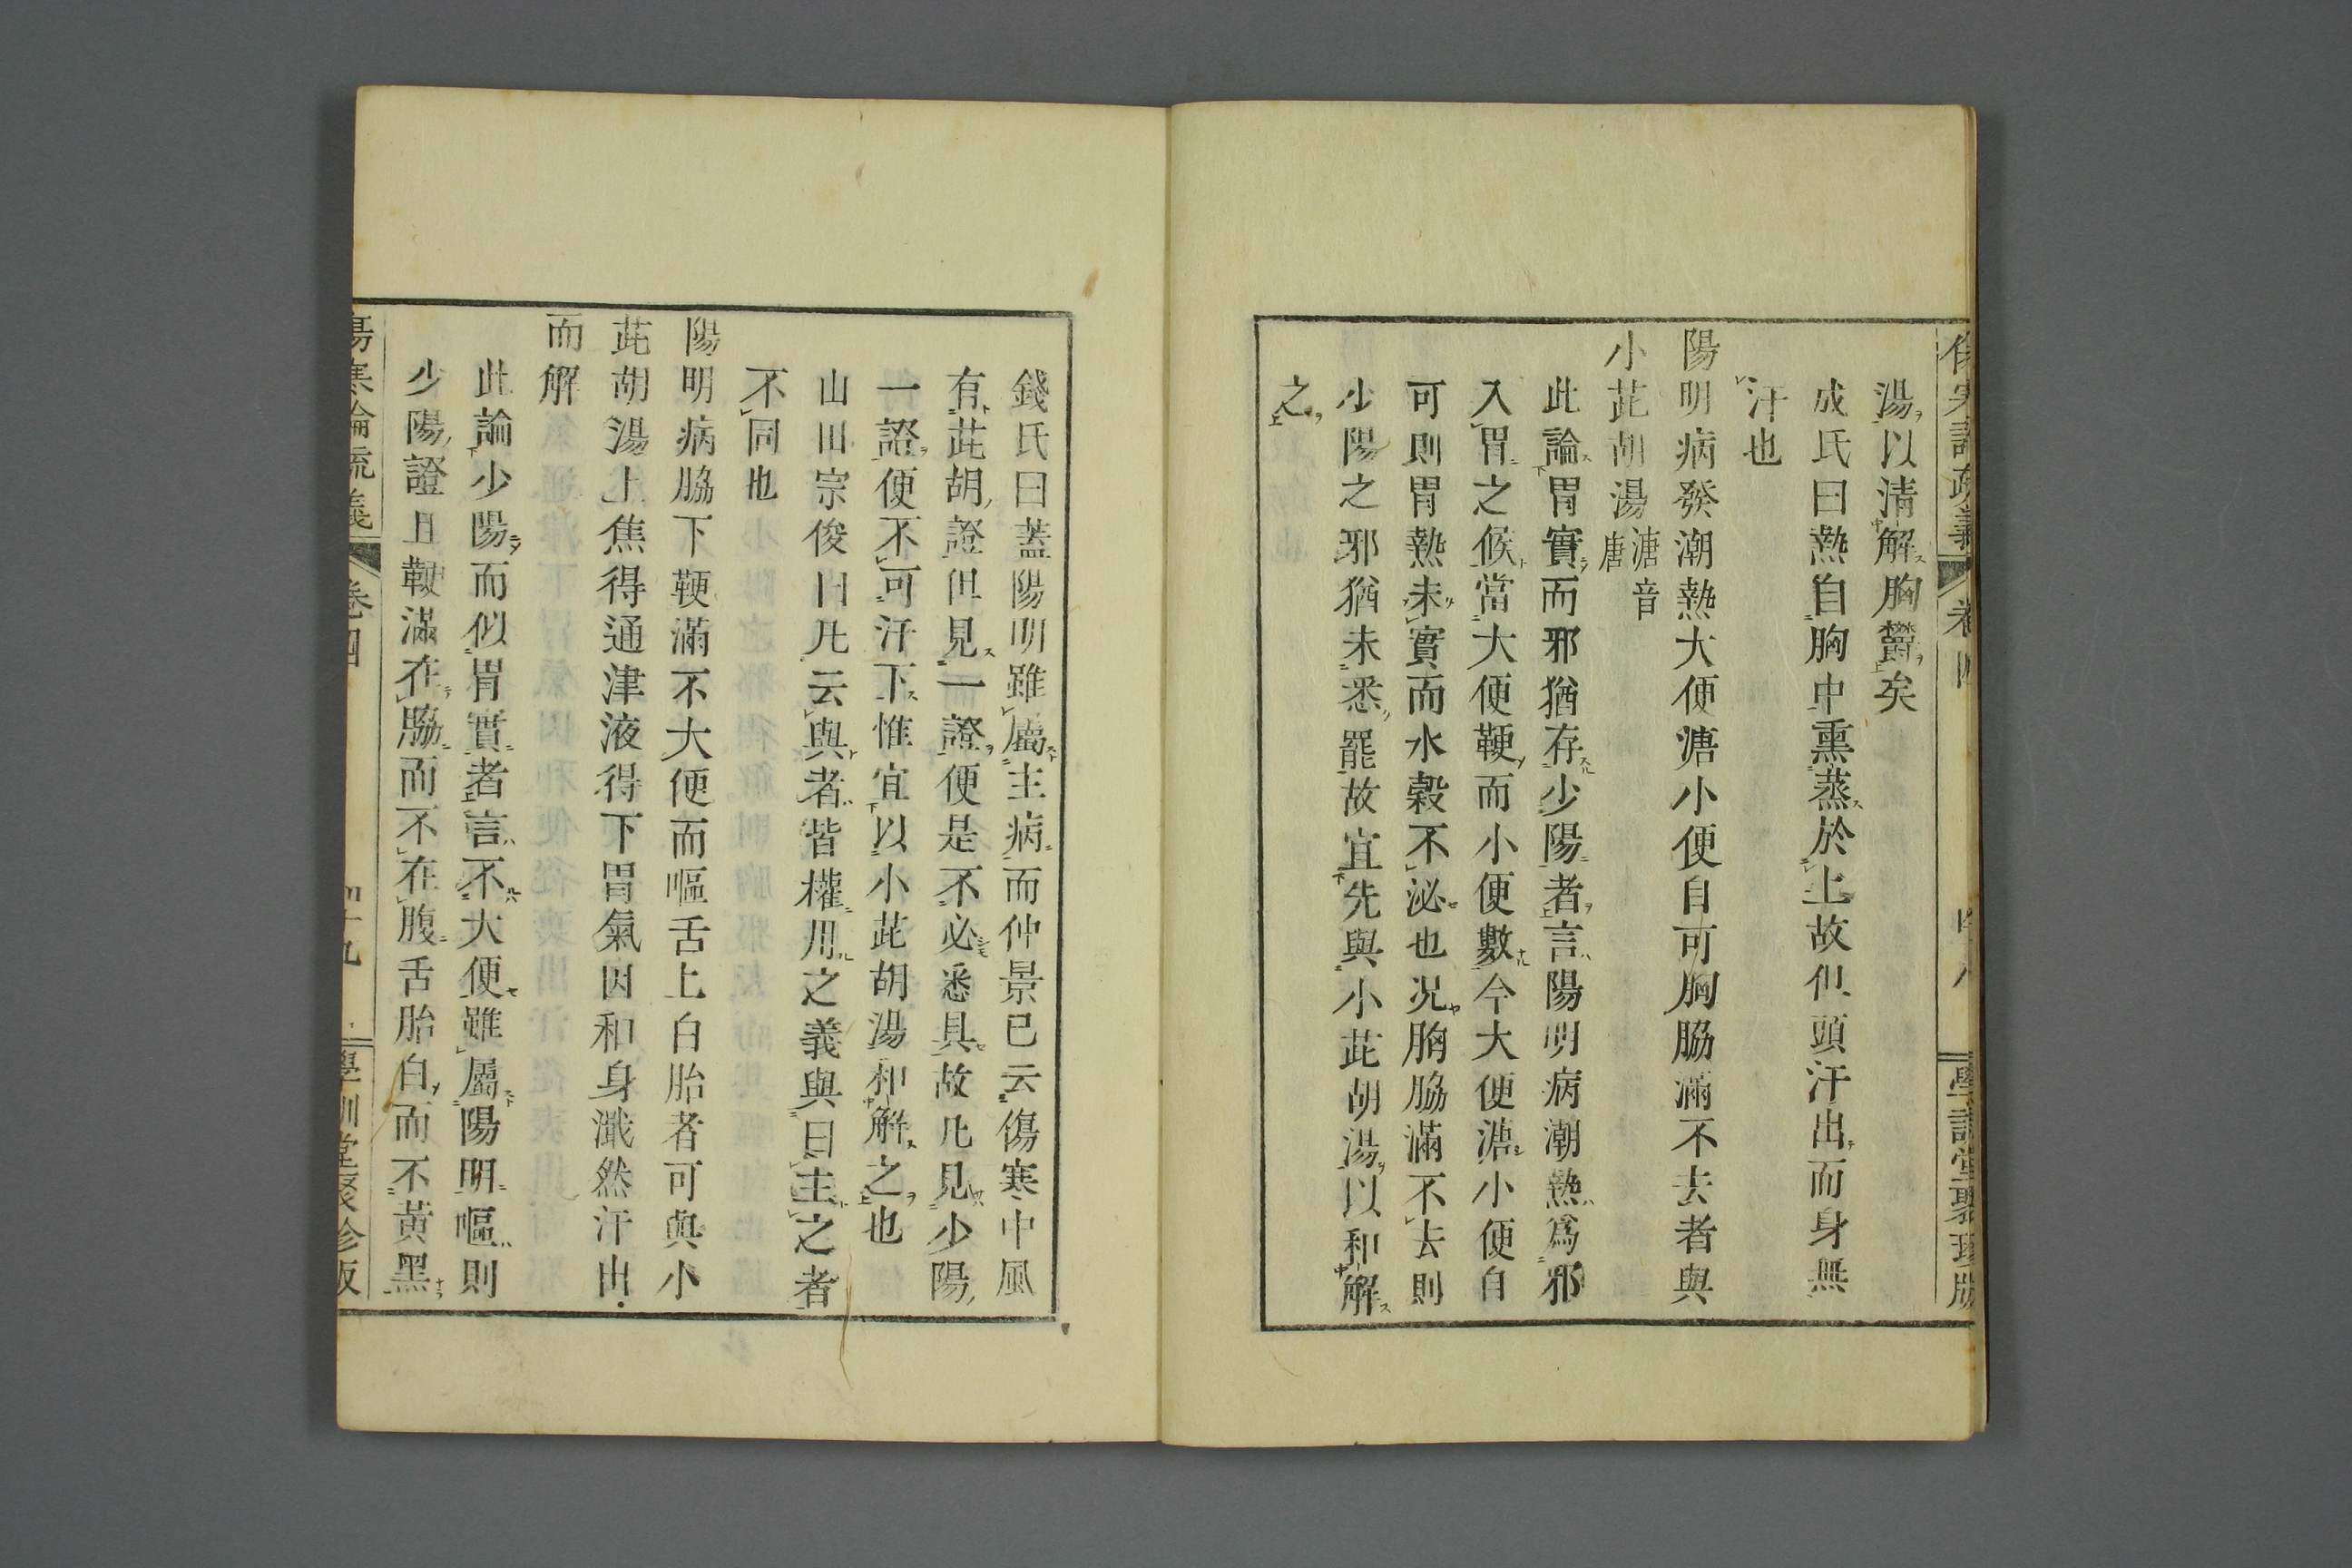 湯以清解胸鬱矣
成氏曰熱自胸中熏蒸於上故但頭汗出而身無
汗也
陽明病發潮熱大便溏小便自可胸脇滿不去者與
小茈胡湯溏音唐
此論胃實而邪猶存少陽者言陽明病潮熱爲邪
入胃之候當大便鞕而小便數今大便溏小便自
可則胃熱未實而水穀不泌也況胸脇滿不去則
少陽之邪猶未悉罷故宜先與小茈胡湯以和解
之
錢氏曰蓋陽明雖屬主病而仲景已云傷寒中風
有茈胡證但見一證便是不必悉具故凡見少陽
一證便不可汗下惟宜以小茈胡湯和解之也
山田宗俊曰凡云與者皆權用之義與曰主之者
不同也
陽明病脇下鞕滿不大便而嘔舌上白胎者可與小
茈胡湯上焦得通津液得下胃氣因和身濈然汗出
而解
此論少陽而似胃實者言不大便雖屬陽明嘔則
少陽證且鞕滿在脇而不在腹舌胎白而不黃黑
傷寒論疏義 卷四 四十九 學訓堂聚珍版